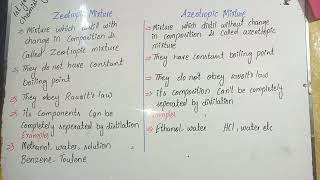 Zeotropic Mixture
Mixture which distil with
change in composition is
Called Zeotropic mixture
They do not have constant
boiling point
They obey Raoult's law
Its components can be
completely seperated by distilation
Examples
Methanol, water, solution
Benzene-Toulone
Azeotropic Mixture
Mixture which distil without change
in composition is called azeotropic
mixture
They have constant boiling point
They do not obey raoult's law
its composition Can't be completely
seperated by distilation
Examples
Ethanol, water HCl, water etc